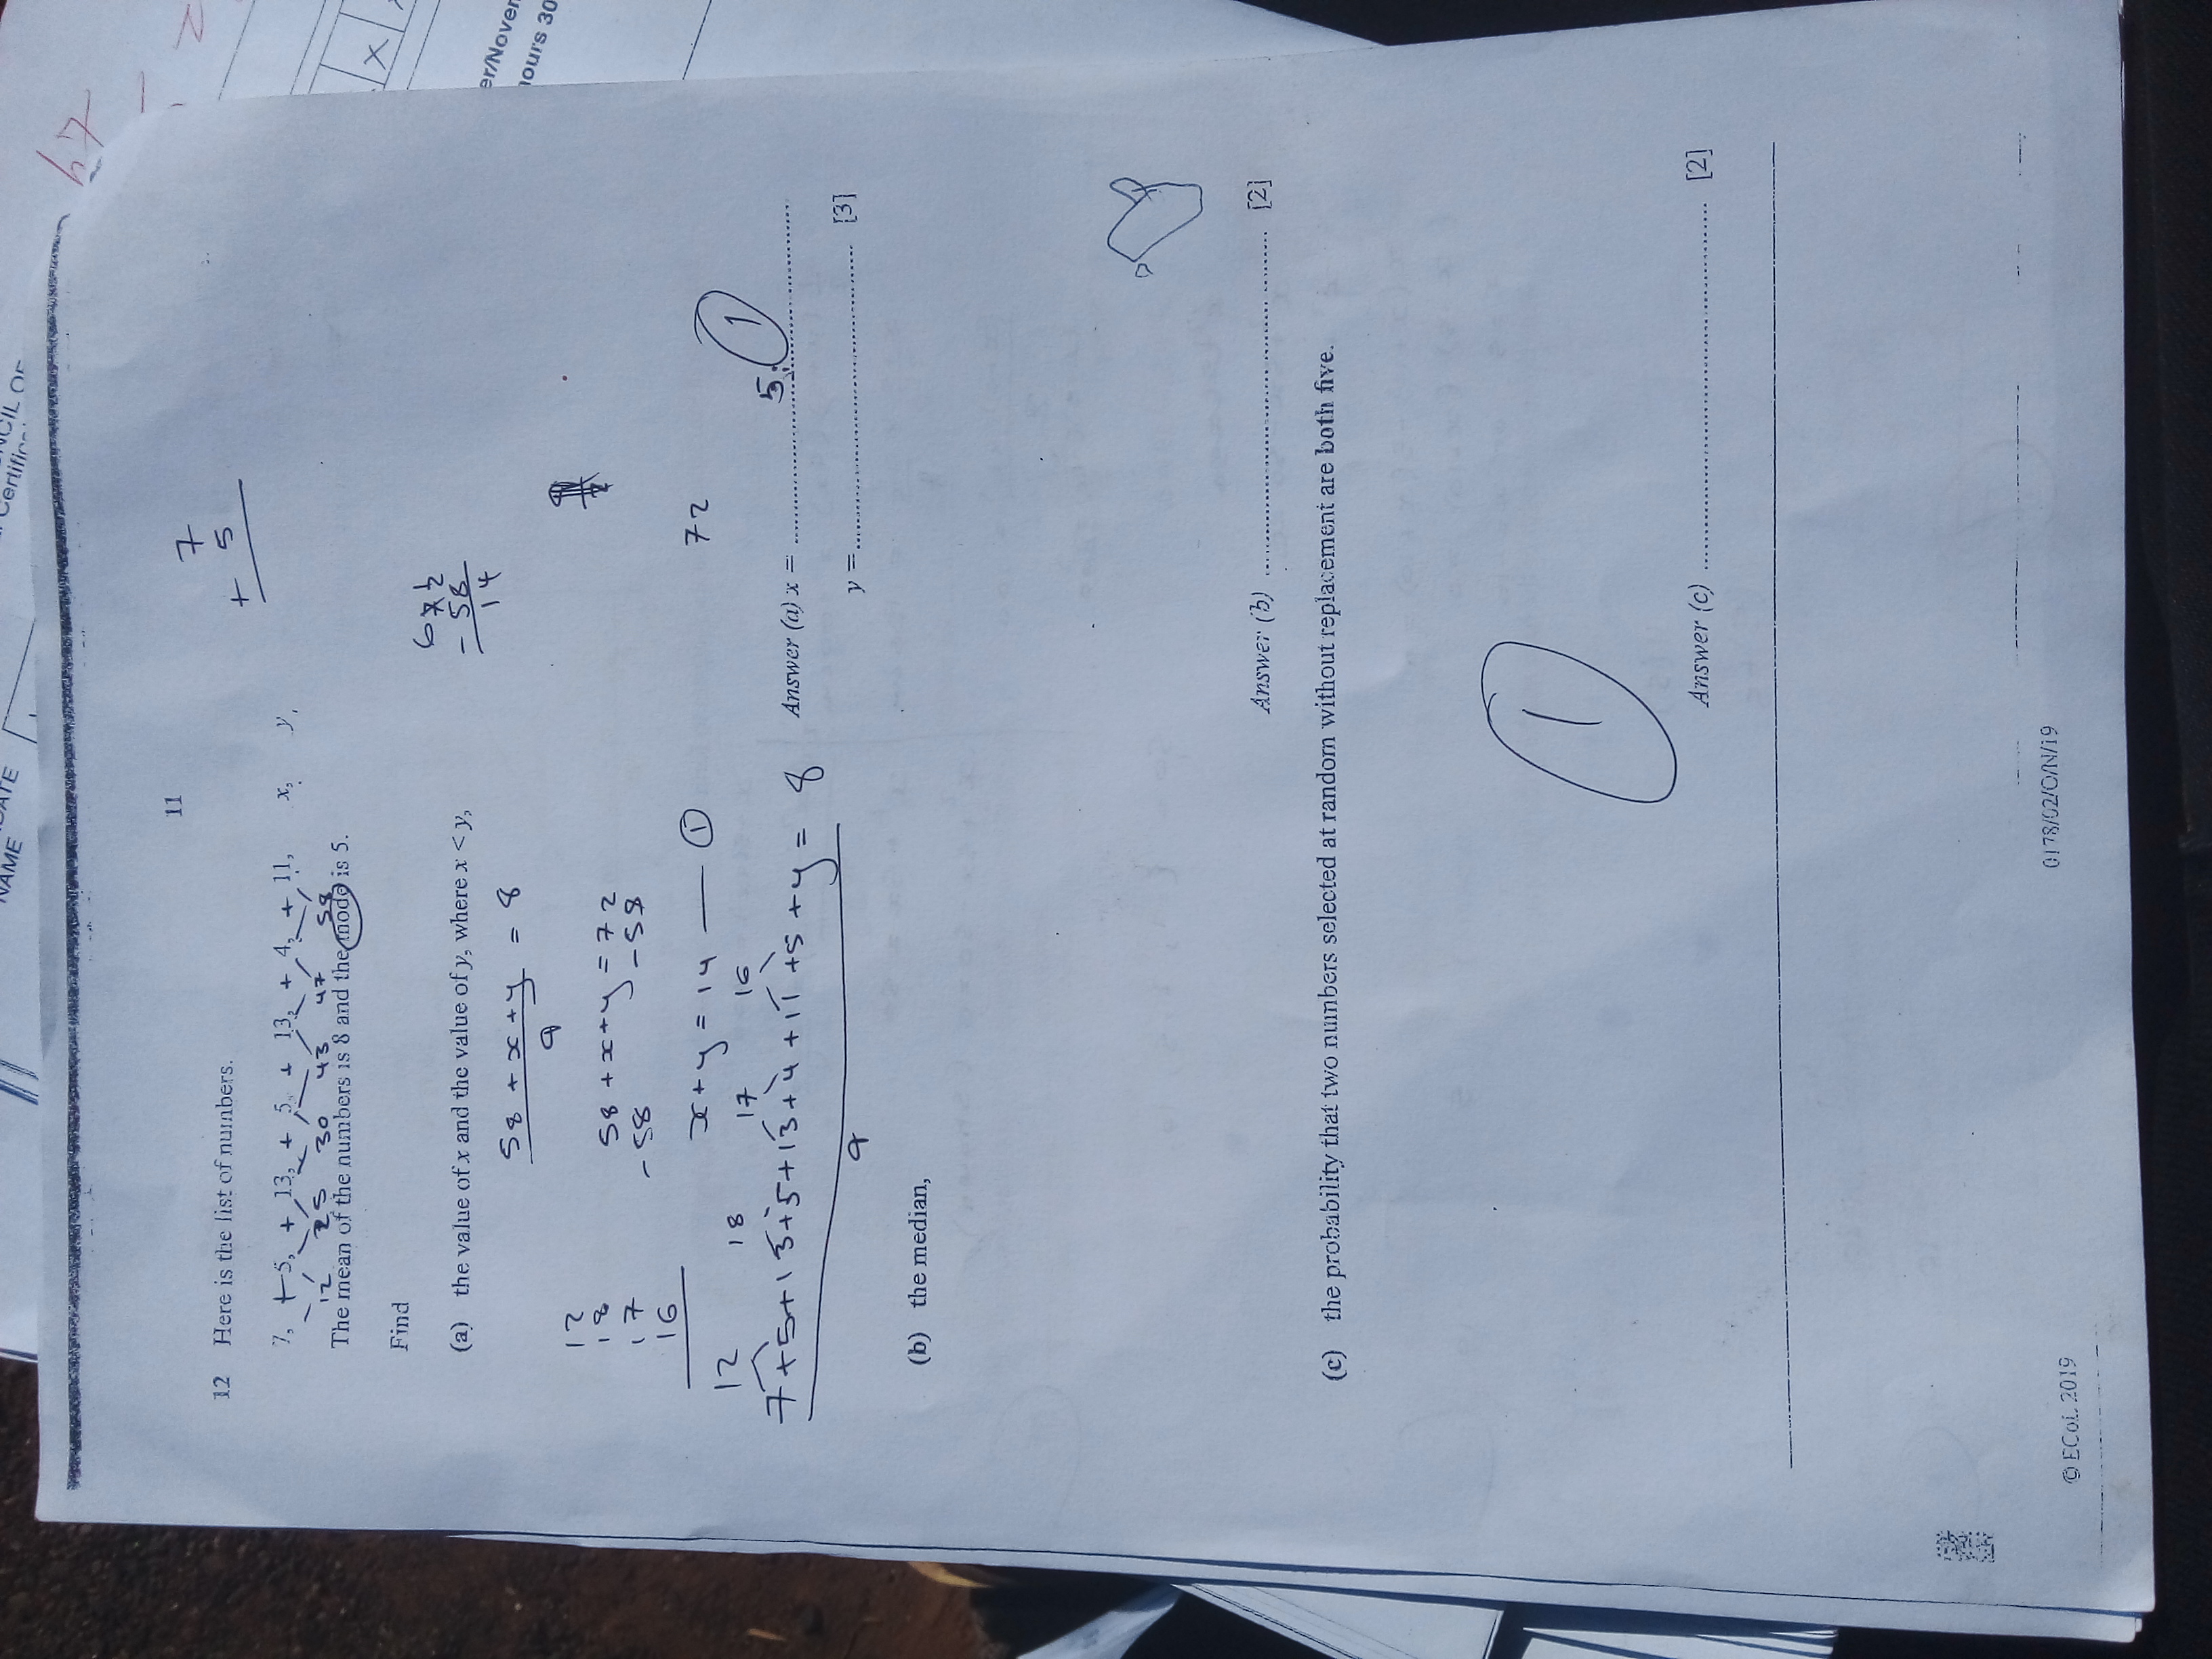 NAME
11
7
+ 5
12 Here is the list of numbers.
7, + 5, + 13, + 5, + 13, + 4, + 11, x, y,
12 25 30 43 47 58
The mean of the numbers is 8 and the mode is 5.
Find
(a) the value of x and the value of y, where x < y,
672
- 58
14
58 + x + y = 8
9
12
18
17
16
58 + x + y = 72
- 58 - 58
x + y = 14 — ①
72
12 18 17 16
7+5+13+5+13+4+11+5+y = 8
9
Answer (a) x = 5 1
y = [3]
(b) the median,
Answer (b) [2]
(c) the probability that two numbers selected at random without replacement are both five.
1
Answer (c) [2]
© ECoL 2019
0178/02/O/N/19